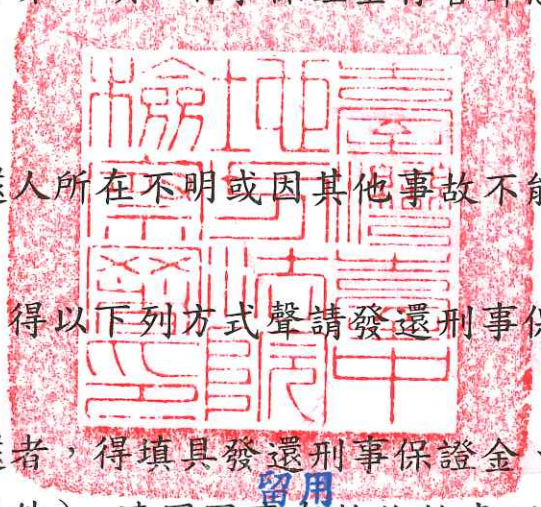 人所在不明或因其他事故不能
得以下列方式聲請發還刑事保
者，得填具發還刑事保證金、
留用
臺灣臺中
地方法院
檢察署印